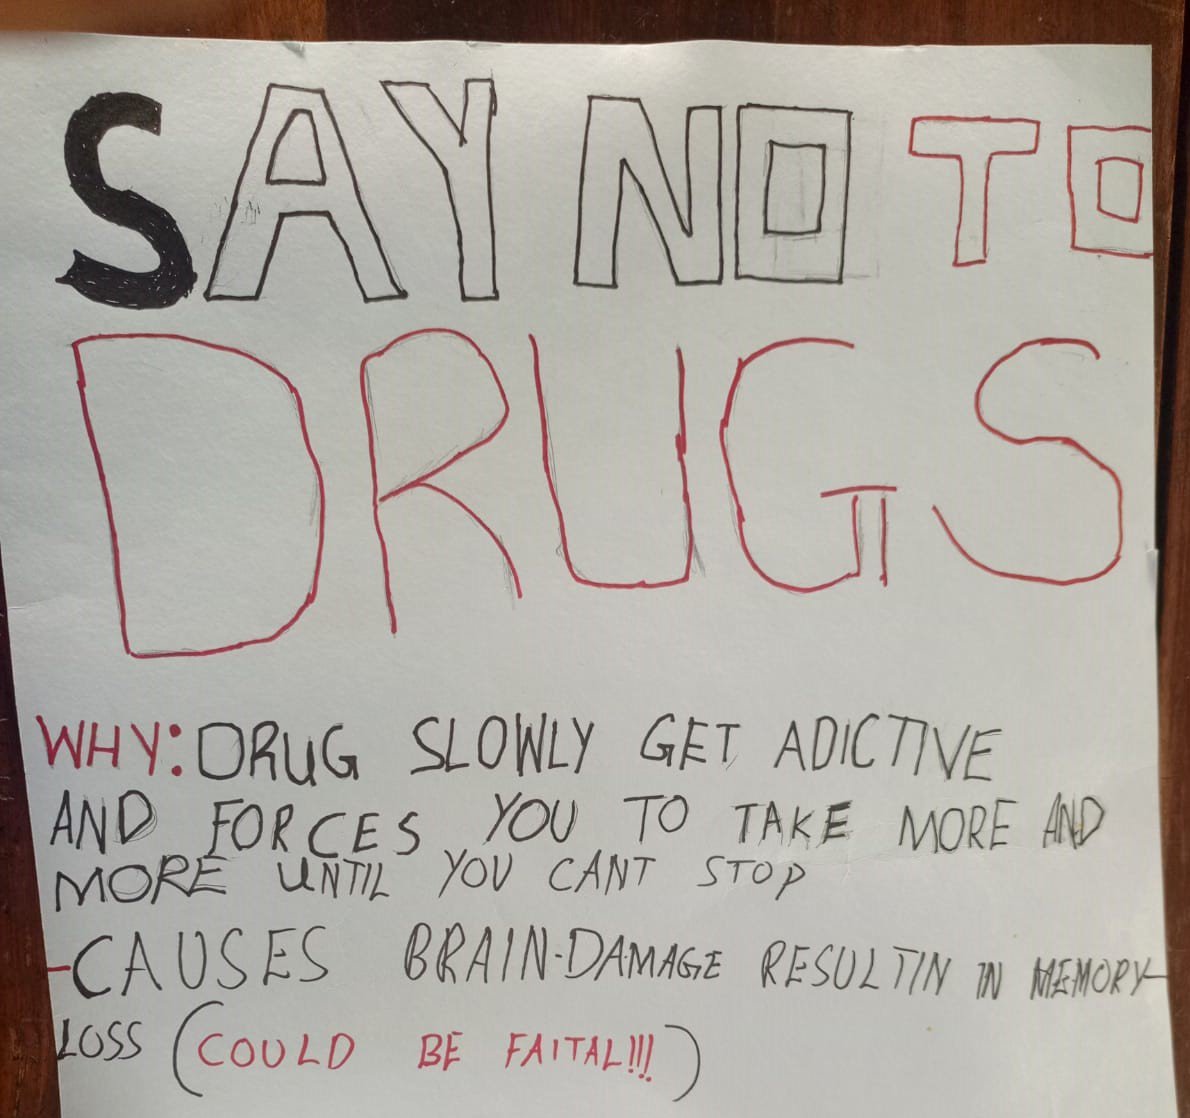 SAY NO TO
DRUGS
WHY: DRUG SLOWLY GET ADICTIVE
AND FORCES YOU TO TAKE MORE AND
MORE UNTIL YOU CANT STOP
-CAUSES BRAIN-DAMAGE RESULTIN IN MEMORY-
LOSS (COULD BE FAITAL!!!)